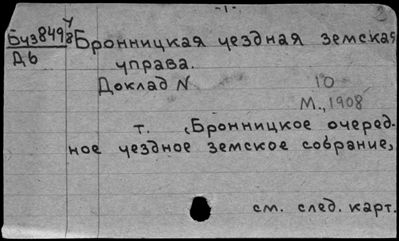 -1-
Буз849 7/8 Бронницкая уездная земская
Дб управа.
Доклад N 10
М., 1908
т. (Бронницкое очеред-
ное уездное земское собрание,
см. след. карт.